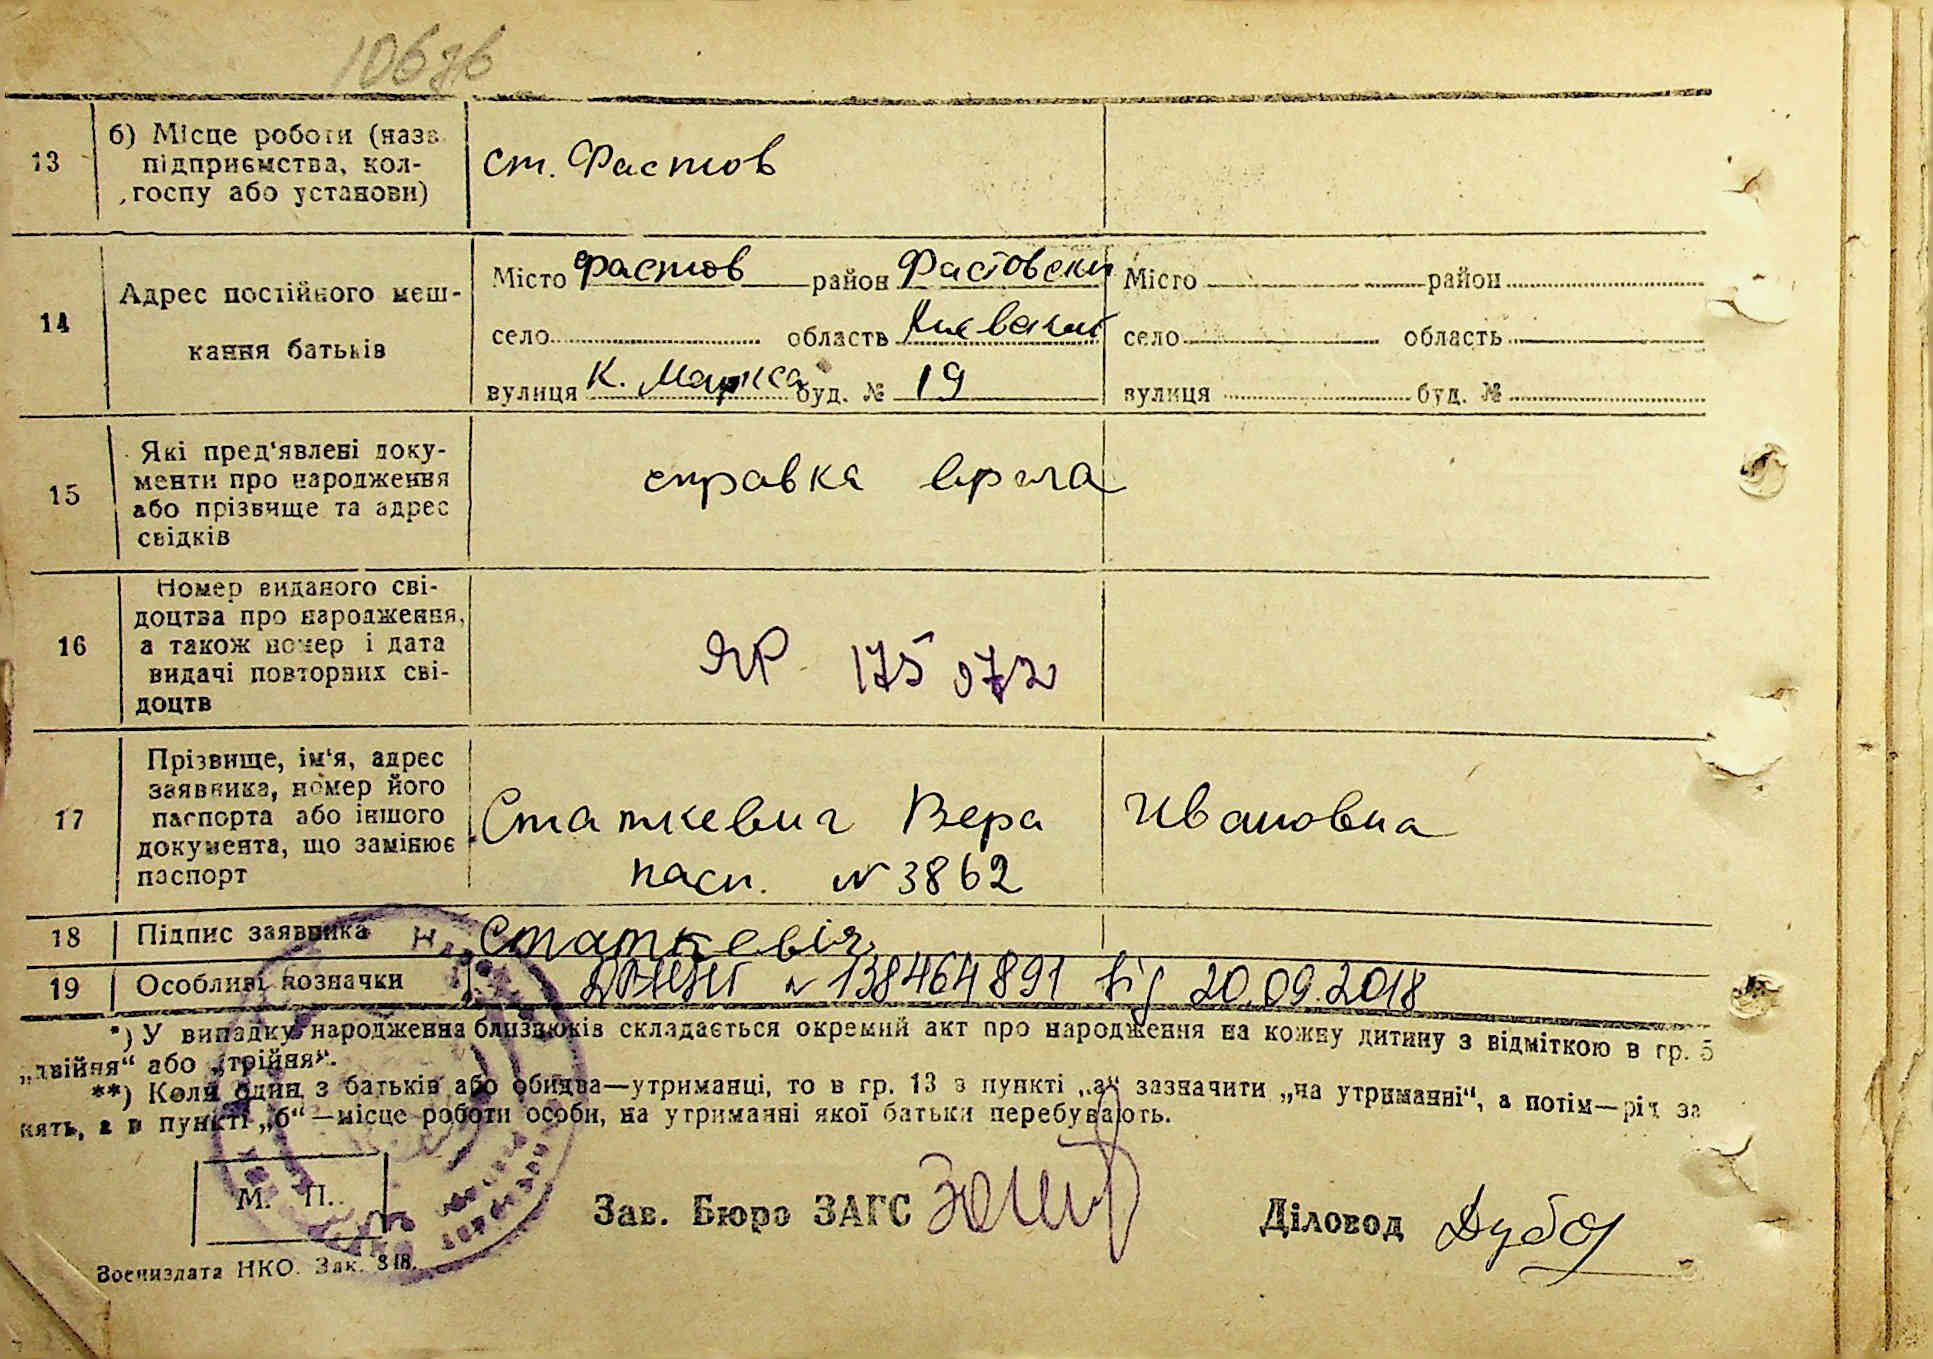 13
б) Місце роботи (назв.
підприємства, кол-
госпу або установи)
ст. Фастов
14
Адрес постійного меш-
кання батьків
Місто Фастов район Фастовский
село область Киевский
вулиця К. Маркса буд. № 19
Місто район
село область
вулиця буд. №
15
Які пред'явлені доку-
менти про народження
або прізвище та адрес
свідків
справка врача
16
Номер виданого сві-
доцтва про народження,
а також номер і дата
видачі повторних сві-
доцтв
ЯР 175972
17
Прізвище, ім'я, адрес
заявника, номер його
паспорта або іншого
документа, що замінює
паспорт
Статкевич Вера Ивановна
пасп. № 3862
18 Підпис заявника Статкевіч
19 Особливі позначки № 138464891 від 20.09.2018
*) У випадку народження близнюків складається окремий акт про народження на кожну дитину з відміткою в гр. 5
„двійня“ або „трійня“.
**) Коли один з батьків або обидва—утриманці, то в гр. 13 в пункті „а“ зазначити „на утриманні“, а потім—рід за
нять, а в пункті „б“—місце роботи особи, на утриманні якої батьки перебувають.
М. П.
Зав. Бюро ЗАГС
Діловод
Воениздата НКО. Зак. 818.